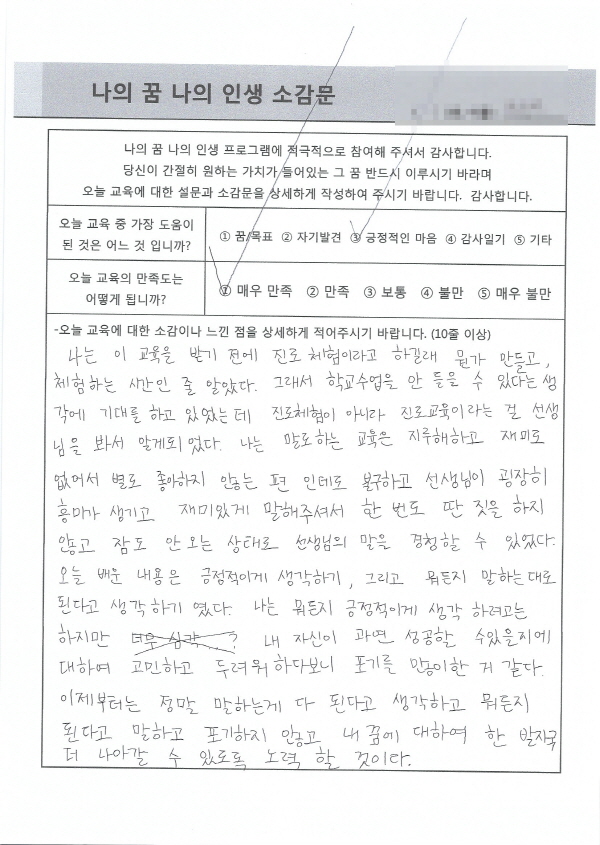 나의 꿈 나의 인생 소감문
나의 꿈 나의 인생 프로그램에 적극적으로 참여해 주셔서 감사합니다.
당신이 간절히 원하는 가치가 들어있는 그 꿈 반드시 이루시기 바라며
오늘 교육에 대한 설문과 소감문을 상세하게 작성하여 주시기 바랍니다. 감사합니다.
오늘 교육 중 가장 도움이
된 것은 어느 것 입니까?
① 꿈/목표 ② 자기발견 ③ 긍정적인 마음 ④ 감사일기 ⑤ 기타
오늘 교육의 만족도는
어떻게 됩니까?
① 매우 만족 ② 만족 ③ 보통 ④ 불만 ⑤ 매우 불만
-오늘 교육에 대한 소감이나 느낀 점을 상세하게 적어주시기 바랍니다. (10줄 이상)
나는 이 교육을 받기 전에 진로체험이라고 하길래 뭔가 만들고,
체험하는 시간인 줄 알았다. 그래서 학교수업을 안 들을 수 있다는 생
각에 기대를 하고 있었는데 진로체험이 아니라 진로교육이라는 걸 선생
님을 봐서 알게되었다. 나는 말로하는 교육은 지루해하고 재미도
없어서 별로 좋아하지 않는 편 인데도 불구하고 선생님이 굉장히
흥미가 생기고 재미있게 말해주셔서 한 번도 딴 짓을 하지
않고 잠도 안 오는 상태로 선생님의 말을 경청할 수 있었다.
오늘 배운 내용은 긍정적이게 생각하기, 그리고 뭐든지 말하는대로
된다고 생각하기 였다. 나는 뭐든지 긍정적이게 생각 하려고는
하지만 내 자신이 과연 성공할 수있을지에
대하여 고민하고 두려워 하다보니 포기를 많이한 거 같다.
이제부터는 정말 말하는게 다 된다고 생각하고 뭐든지
된다고 말하고 포기하지 않고 내 꿈에 대하여 한 발자국
더 나아갈 수 있도록 노력 할 것이다.